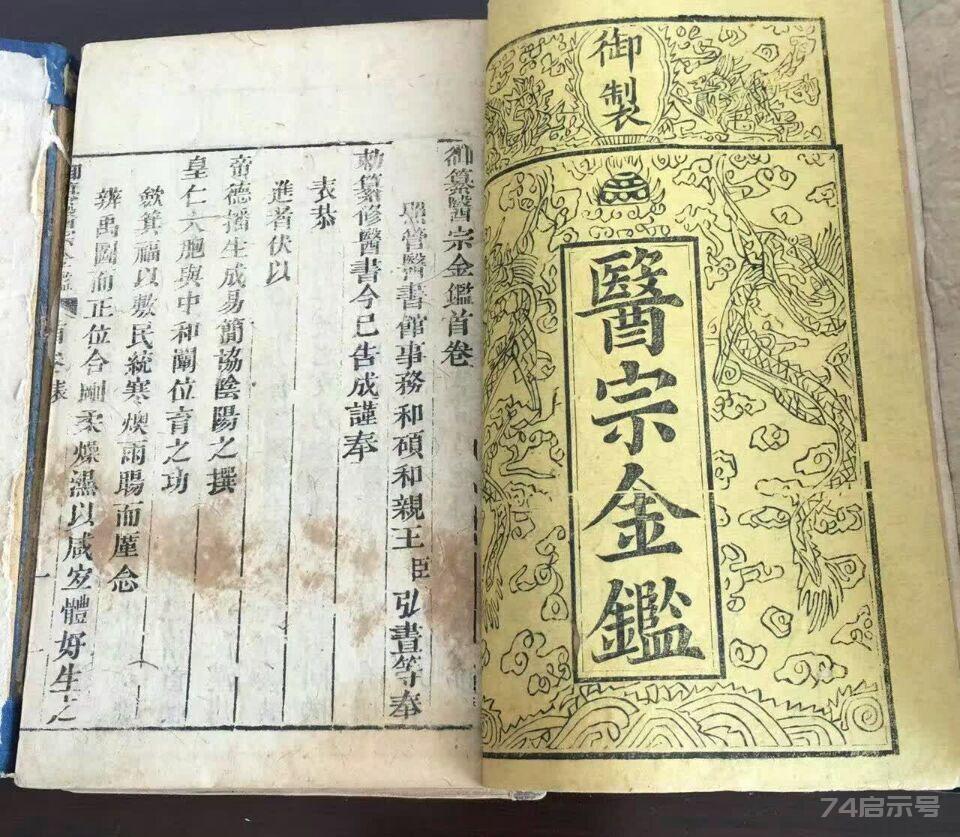 御製
醫宗金鑑
御纂醫宗金鑑首卷
照管醫書館事務和碩和親王臣弘晝等奉
勅纂修醫書今已告成謹奉
表恭
進者伏以
帝德播生成易簡協陰陽之撰
皇仁大胞與中和闡位育之功
斂箕福以敷民統寒燠雨暘而廑念
辨禹圖而正位合剛柔燥濕以咸宜體好生之
74启示号